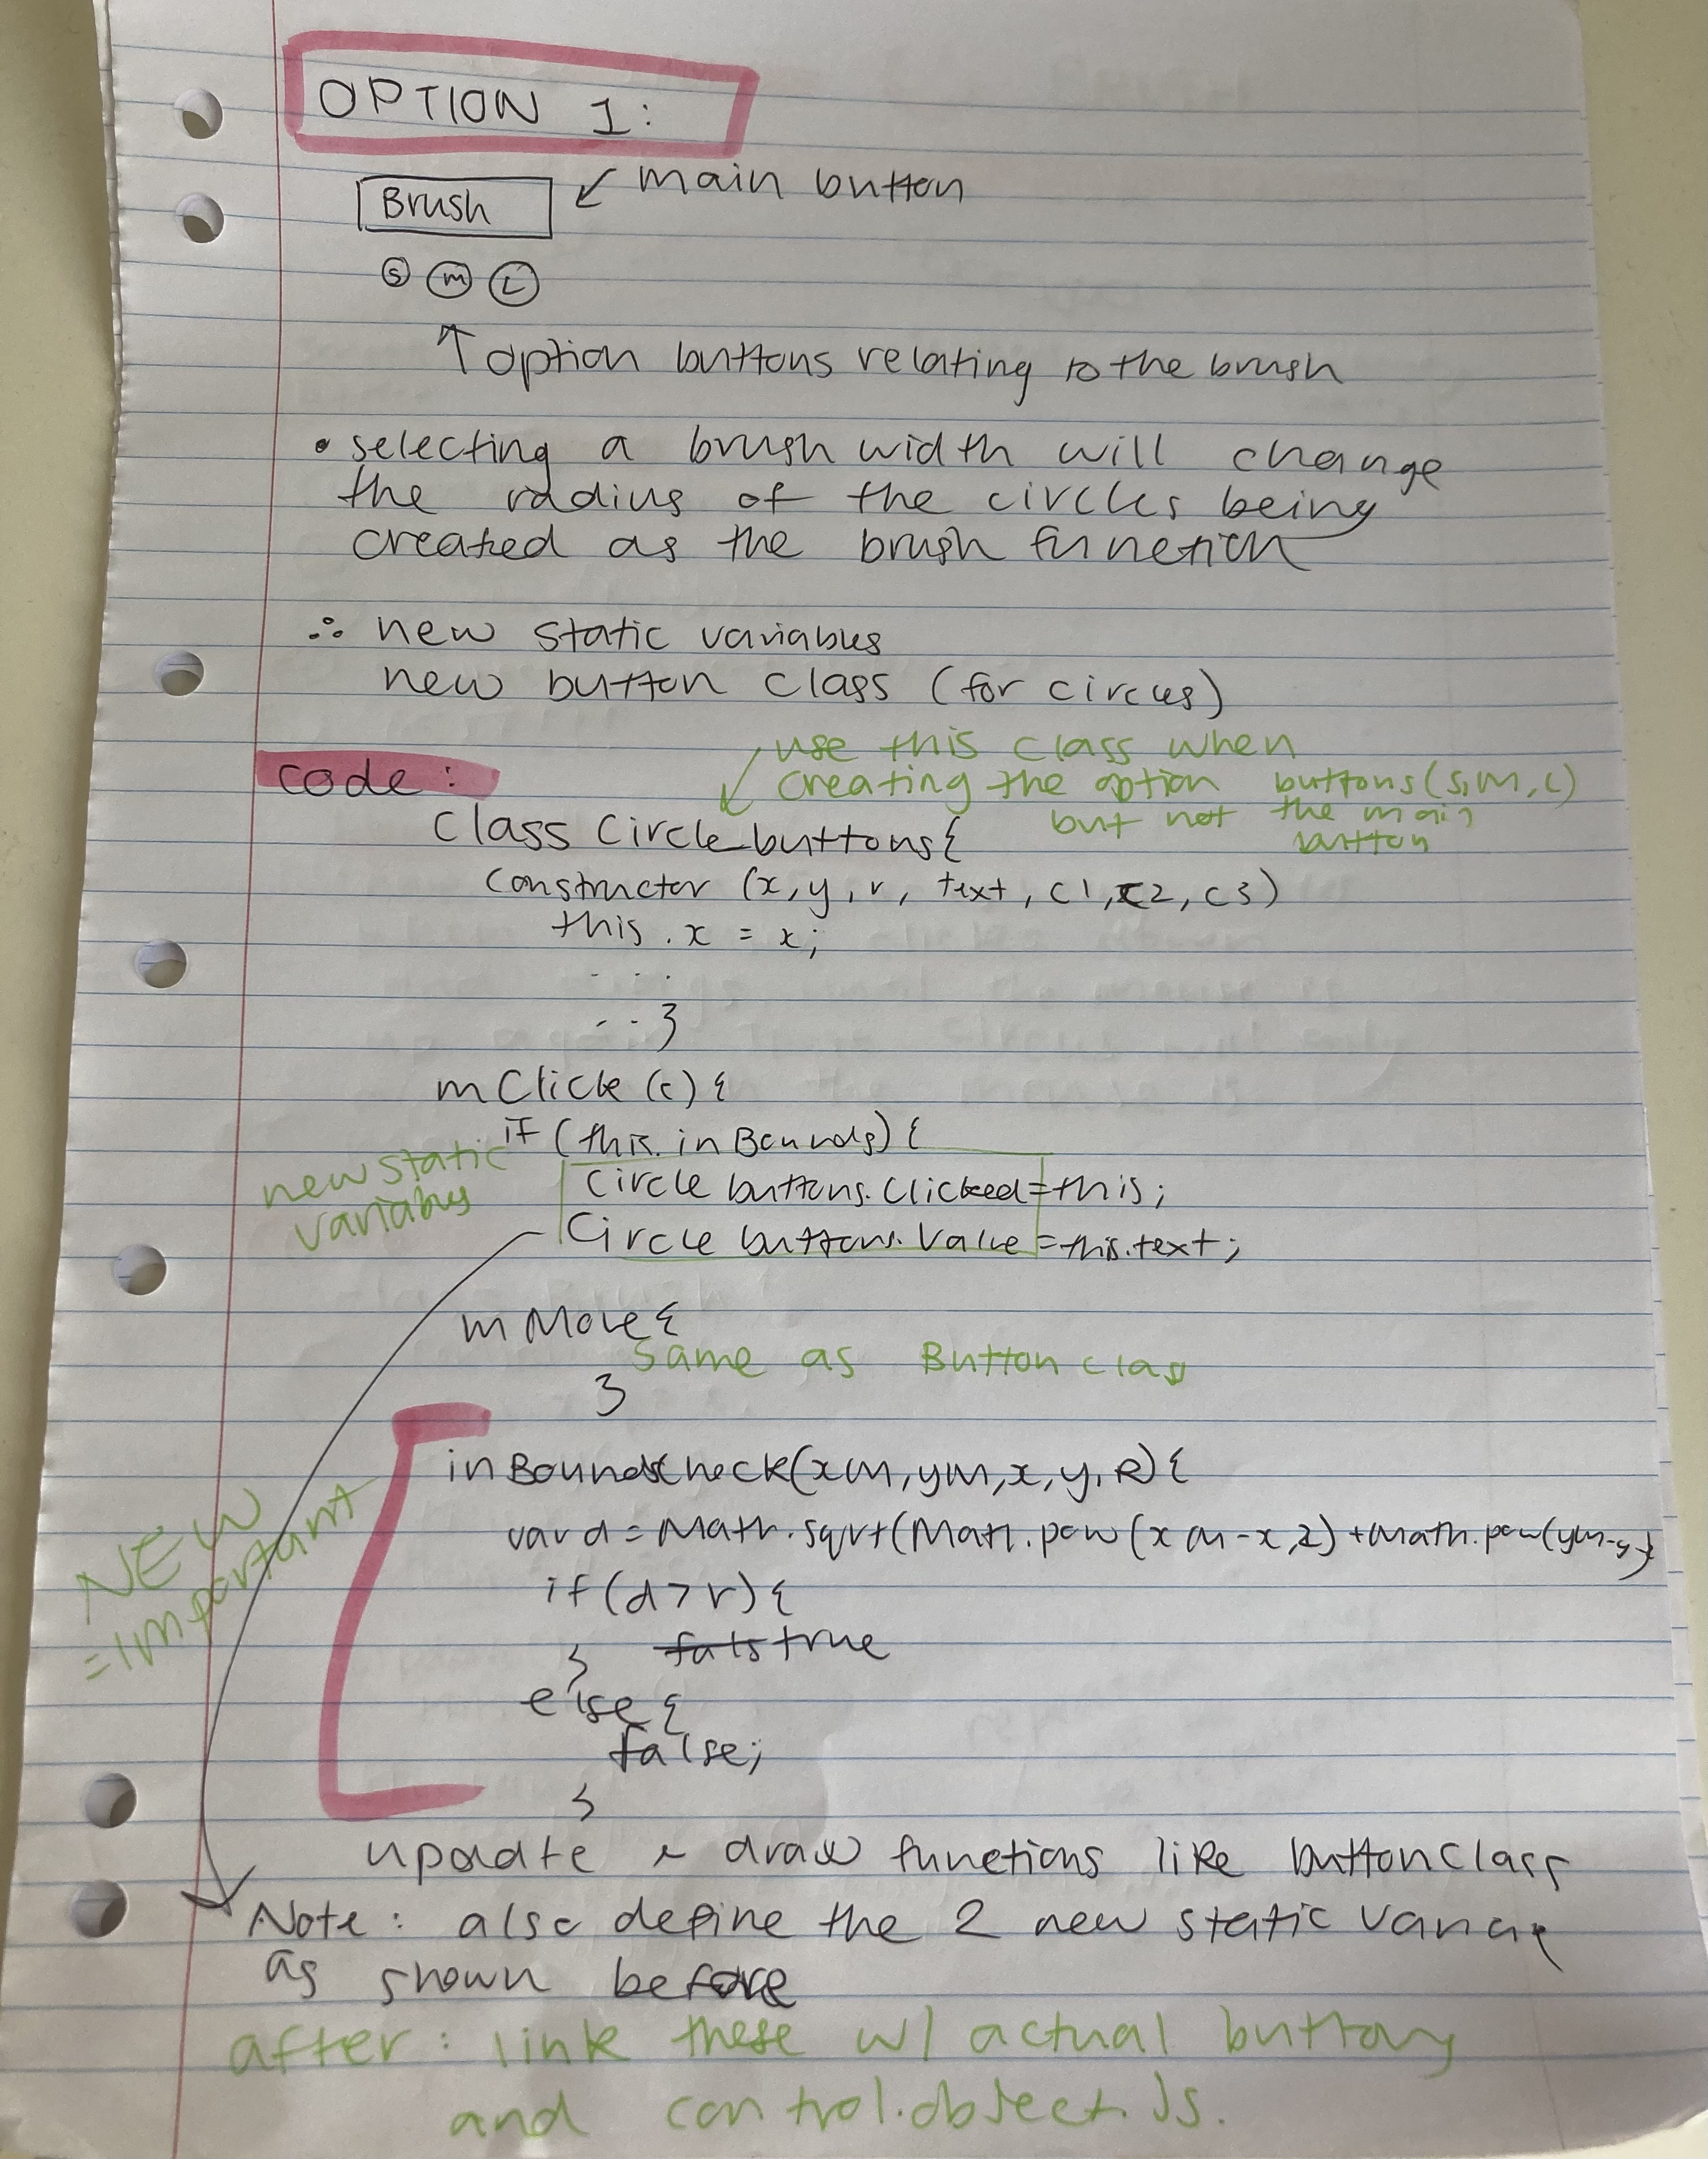 OPTION 1:
Brush
↙ main button
S M L
↑ option buttons relating to the brush
• selecting a brush width will change
the radius of the circles being
created as the brush function
∴ new static variables
new button class (for circles)
use this class when
code:
creating the option buttons (S, M, L)
but not the main
button
class Circle_buttons{
constructor (x, y, r, text, c1, c2, c3)
this.x = x;
. . .
. . }
mClick (e) {
if (this.inBounds) {
new static
variables
Circle buttons.Clicked = this;
Circle buttons.Value = this.text;
mMove {
Same as Button class
}
inBoundsCheck(xm, ym, x, y, R) {
var d = Math.sqrt(Math.pow(xm-x,2) + Math.pow(ym-y
NEW
= important
if (d > r) {
fals true
}
else {
false;
}
update & draw functions like button class
Note: also define the 2 new static
as shown before
after: link these w/ actual buttons
and control.object.js.